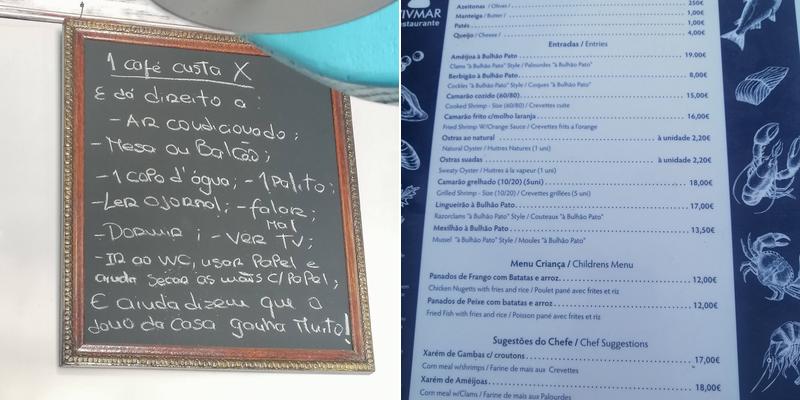 1 café custa X
E dá direito a:
- AR condicionado;
- Mesa ou Balcão;
- 1 copo d'água; - 1 palito;
- LER O jornal; - falar;
Mal
- DORMIR; - VER TV;
- IR ao WC, usar PAPel e
ainda secar as mãos c/ Papel;
E ainda dizem que o
dono da casa ganha Muito!
VIVMAR
Restaurante
Azeitonas / Olives / 250€
Manteiga / Butter / 1,00€
Patés 1,00€
Queijo / Cheese / 4,00€
Entradas / Entries
Amêijoa à Bulhão Pato 19.00€
Clams "à Bulhão Pato" Style / Palourdes "à Bulhão Pato"
Berbigão à Bulhão Pato 8,00€
Cockles "à Bulhão Pato" Style / Coques "à Bulhão Pato"
Camarão cozido (60/80) 15,00€
Cooked Shrimp - Size (60/80) / Crevettes cuite
Camarão frito c/molho laranja 16,00€
Fried Shrimp W/Orange Sauce / Crevettes frits a l'orange
Ostras ao natural à unidade 2,20€
Natural Oyster / Huitres Natures (1 uni)
Ostras suadas à unidade 2,20€
Sweaty Oyster / Huitres à la vapeur (1 uni)
Camarão grelhado (10/20) (5uni) 18,00€
Grilled Shrimp - Size (10/20) / Crevettes grillées (5 uni)
Lingueirão à Bulhão Pato 17,00€
Razorclams "à Bulhão Pato" Style / Couteaux "à Bulhão Pato"
Mexilhão à Bulhão Pato 13,50€
Mussel "à Bulhão Pato" Style / Moules "à Bulhão Pato"
Menu Criança / Childrens Menu
Panados de Frango com Batatas e arroz 12,00€
Chicken Nugetts with fries and rice / Poulet pané avec frites et riz
Panados de Peixe com batatas e arroz 12,00€
Fried Fish with fries and rice / Poisson pané avec frites et riz
Sugestões do Chefe / Chef Suggestions
Xarém de Gambas c/ croutons 17,00€
Corn meal w/shrimps / Farine de mais aux Crevettes
Xarém de Amêijoas 18,00€
Corn meal w/Clams / Farine de mais aux Palourdes